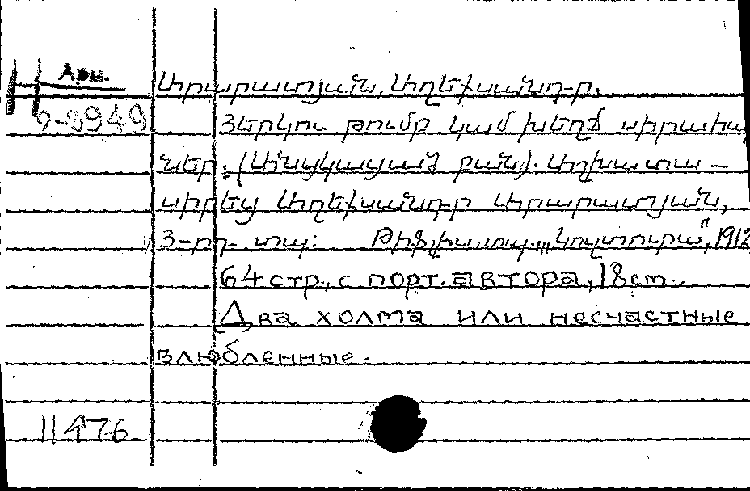 Арм.
Արարատյան, Աղեքսանդր.
9-8949 Յերկու թումբ կամ խեղճ սիրահար
ներ. (Անսկսական բան). Աշխատա-
սիրեց Աղեքսանդր Արարատյան,
3-րդ տպ: Թիֆլիս, տպ. „Կուլտուրա", 1912
64 стр., с порт. автора, 18 cm.
Два холма или несчастные
влюбленные.
11476